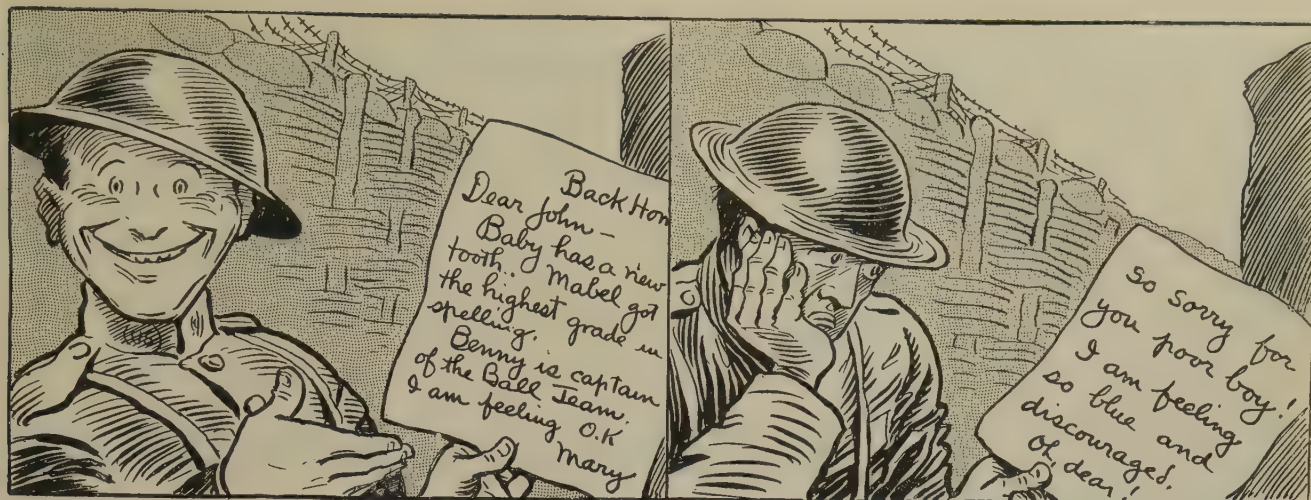 Back Hom
Dear John –
Baby has a new
tooth.. Mabel got
the highest grade in
spelling.
Benny is captain
of the Ball Team.
I am feeling O.K
Mary
So Sorry for
you poor boy!
I am feeling
so blue and
discouraged.
Oh, dear!